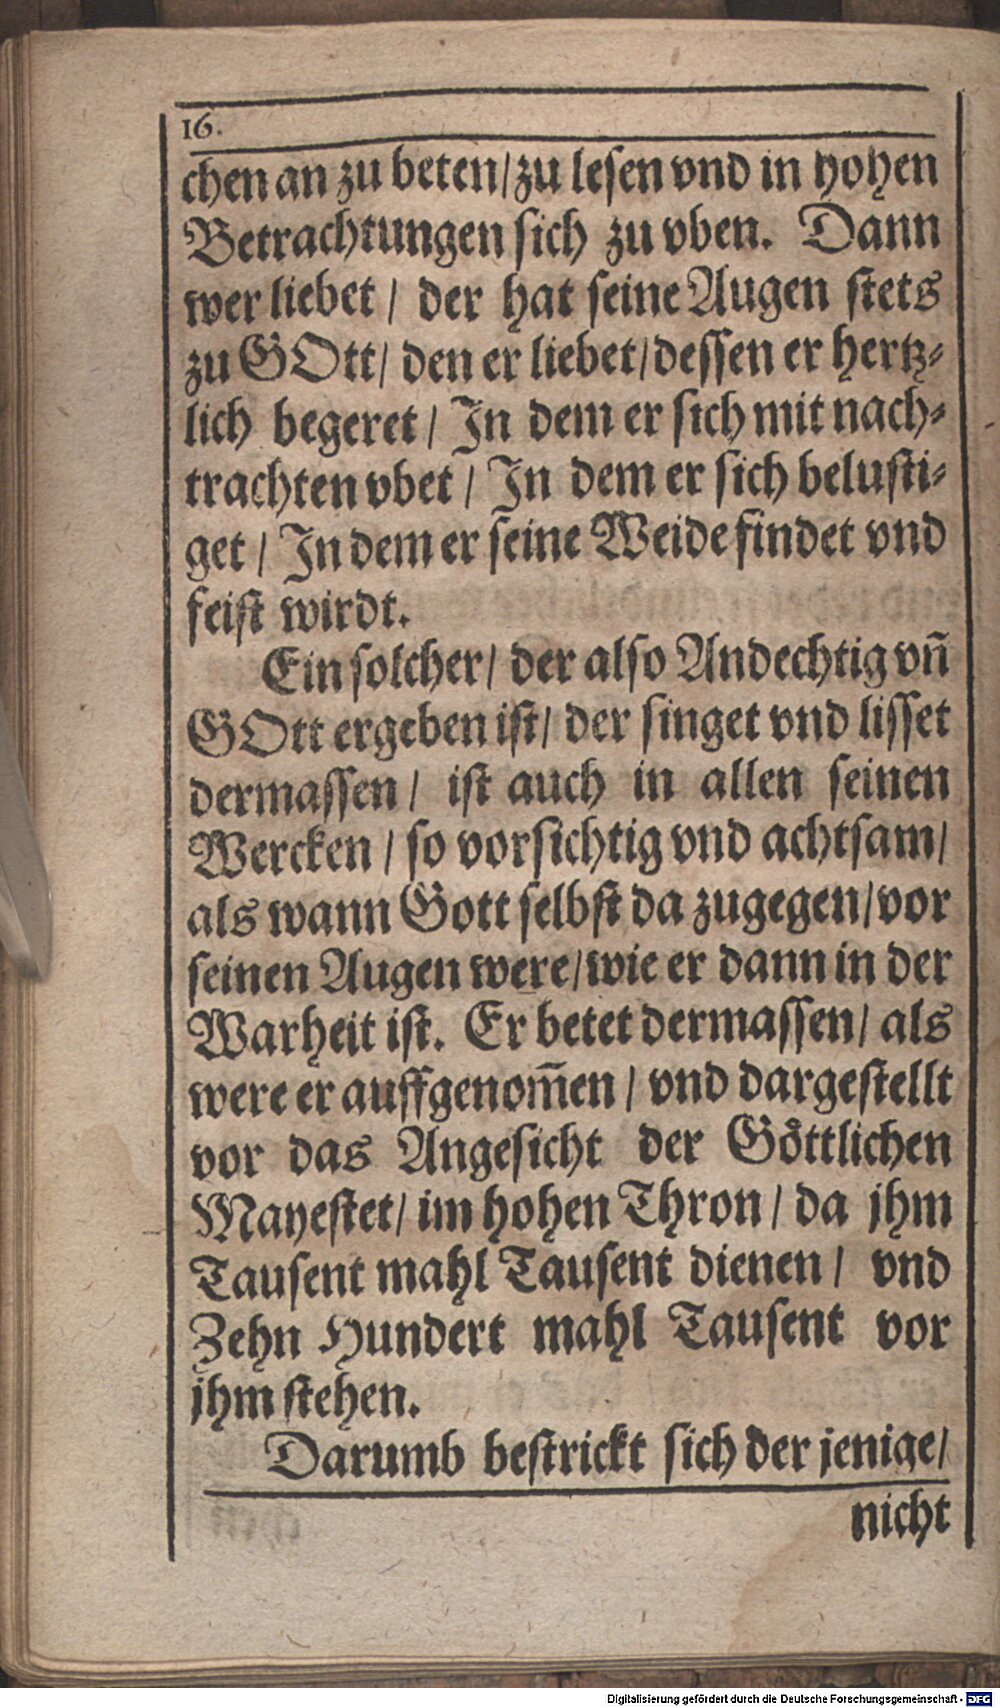 16.
chen an zu beten/zu lesen vnd in hohen
Betrachtungen sich zu vben. Dann
wer liebet/ der hat seine Augen stets
zu GOtt/ den er liebet/dessen er hertz-
lich begeret/ In dem er sich mit nach-
trachten vbet/ In dem er sich belusti-
get/ In dem er seine Weide findet vnd
feist wirdt.
Ein solcher/ der also Andechtig vn̄
GOtt ergeben ist/ der singet vnd lisset
dermassen/ ist auch in allen seinen
Wercken/ so vorsichtig vnd achtsam/
als wann Gott selbst da zugegen/vor
seinen Augen were/wie er dann in der
Warheit ist. Er betet dermassen/ als
were er auffgenom̄en/ vnd dargestellt
vor das Angesicht der Goͤttlichen
Mayestet/ im hohen Thron/ da jhm
Tausent mahl Tausent dienen/ vnd
Zehn Hundert mahl Tausent vor
jhm stehen.
Darumb bestrickt sich der jenige/
nicht
Digitalisierung gefördert durch die Deutsche Forschungsgemeinschaft - DFG